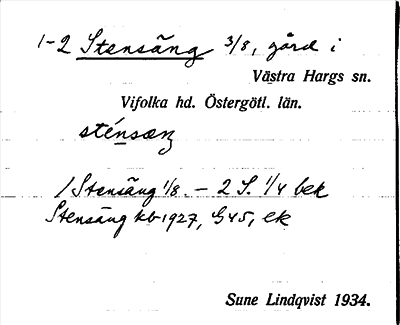 1-2 Stensäng 3/8, gård i
Västra Hargs sn.
Vifolka hd. Östergötl. län.
sténsæŋ
1 Stensäng 1/8. – 2 S. 1/4 bek
Stensäng kb 1927, G45, ek
Sune Lindqvist 1934.